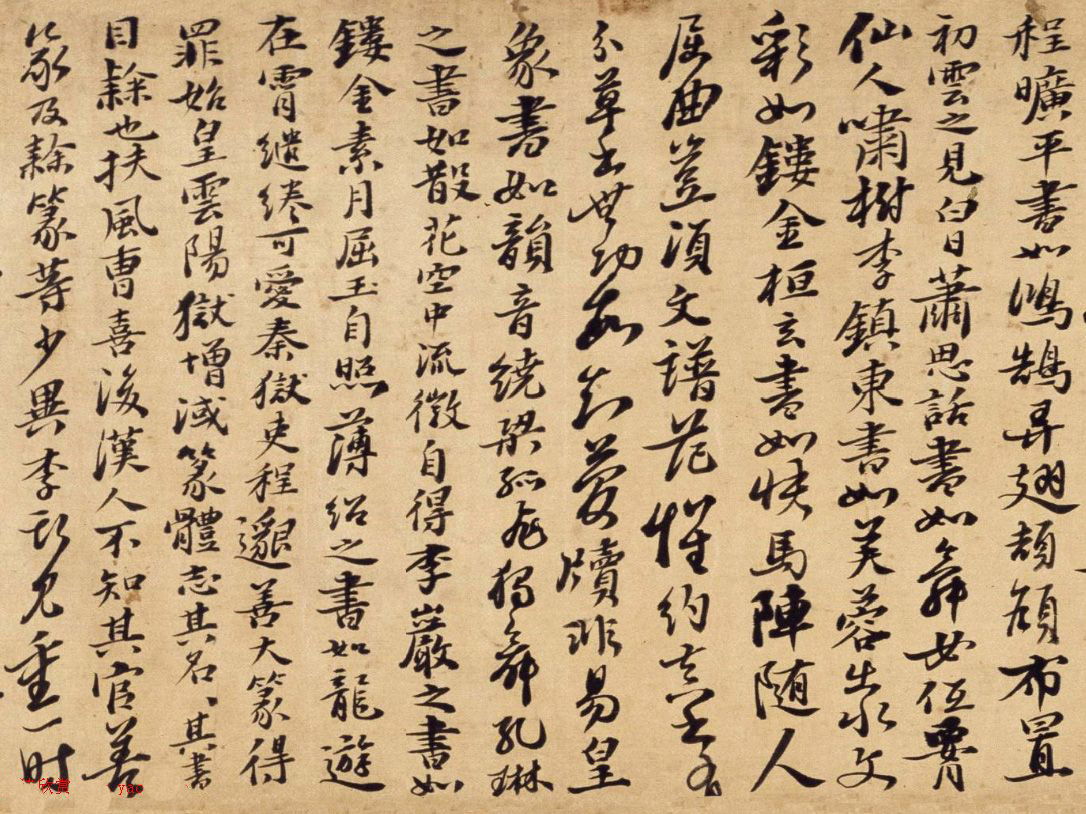 程曠平書如鴻鵠弄翅頡頏布置
初雲之見白日蕭思話書如舞女低腰
仙人嘯樹李鎮東書如芙蓉出水文
彩如鏤金桓玄書如快馬陣隨人
屈曲豈須文譜范惟約真書有
分草書無功故知𥳑牘非易皇
象書如韻音繞梁孤飛獨舞孔琳
之書如散花空中流徵自得李巖之書如
鏤金素月屈玉自照薄紹之書如龍遊
在霄繾綣可愛秦獄吏程邈善大篆得
罪始皇雲陽獄增減篆體志其名、其書
目隸也扶風曹喜後漢人不知其官善
篆及隸篆等少異李斯見重一時
欣賞